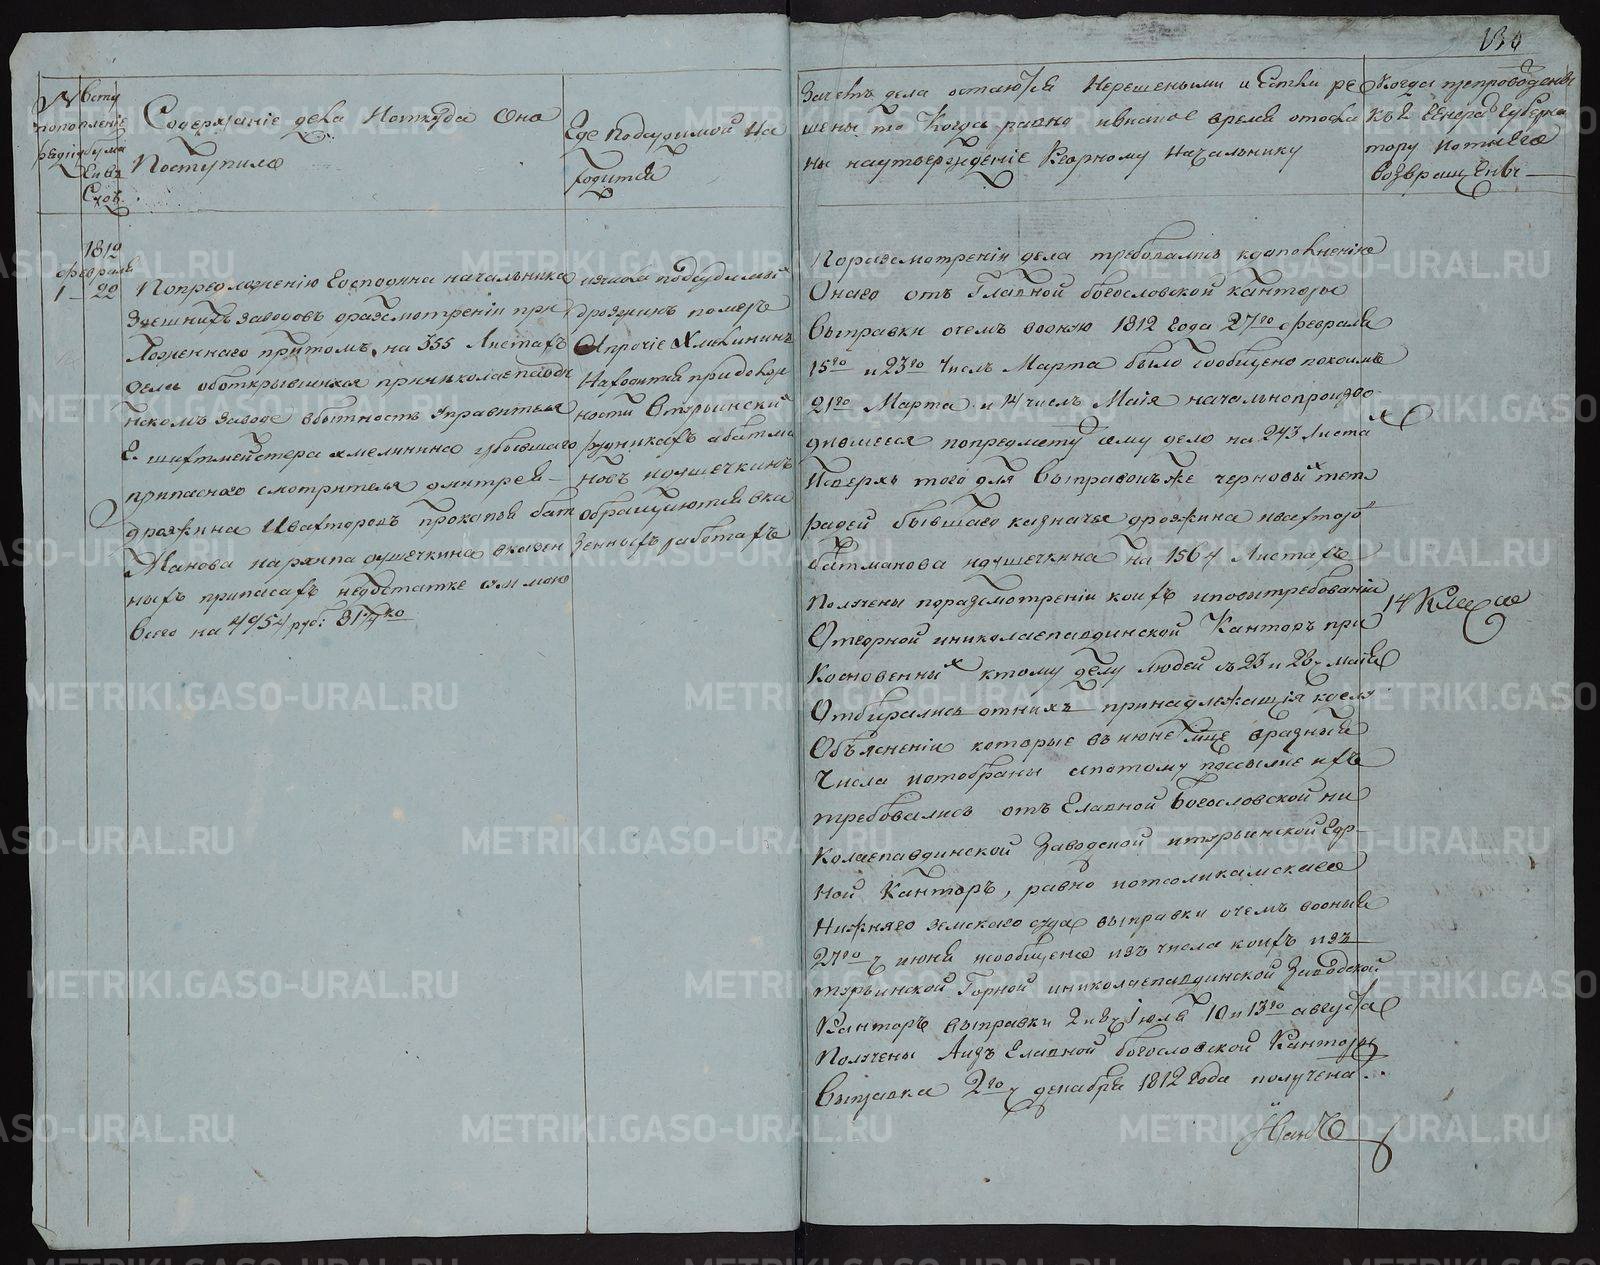 130
№
попо
рядку
Вступ
ление
дума
Ги въ
Слов.
Содержание дела Иоткуда Оно
Поступило
Где Подсудимой На
ходится
Зачемъ дела остаются Нерешеными и Естли ре
шены то Когда равно ивкакое время отосла
ны наутверждение Кгорному Начальнику
Когда препровождены
Къ Г Генерал Губерна
тору Иотнего
возвращены
1812
февраля
1 — 22
Попредложению Господина начальника
Здешнихъ заводовъ оразсмотрении при
ложеннаго притомъ, на 355 Листахъ
дела оботкрывшихся приниколаепавди
нскомъ заводе вбытность Управителя
Г. шихтмейстера Хмелинина убывшаго
припаснаго смотрителя дмитрея
дрожжина Ивахтеровъ Прокопья бат
Манова икарпа лушечкина вказен
ныхъ припасахъ недостатке суммою
всего на 4954 руб: 81¾ ко
изчисла подсудимый
дрожжинъ померъ
Апрочие Хмелининъ
Находится придолж
ности Втурьинских
рудникахъ абатма
новъ илушечкинъ
обращаются вка
зенныхъ работахъ
Поразсмотрении дела требовались кдополнению
Онаго отъ Главной богословской канторы
Выправки очемъ вооную 1812 Года 27го февраля
15го и 23го Числъ Марта было сообщено покоимъ
21го Марта и 14 числъ Майя начальнопроизво
дившееся попредмету сему дело на 243 Листах
Исверхъ того для Выправокъ же черновых тет
радей бывшаго казначея дрожжина ивахтеро
батманова илушечкина На 1564 Листахъ
Получены поразсмотрении коихъ иповытребовании
Отгорной иниколаепавдинской Канторъ при
Косновенных ктому делу людей съ 23 и 28 майя
Отбирались отнихъ принадлежащия кделу
Объяснении которые въ июне мце вразныя
Числа иотобраны апотому посылке ихъ
требовались отъ Главной Богословской ни
колаепавдинской Заводской итурьинской Гор
ной Канторъ, равно иотсоликамскаго
Нижняго земскаго суда выправки очемъ вооныя
27го ч июня исообщено изъ числа коихъ изъ
турьинской Горной иниколаепавдинской Заводской
Канторъ выправки 2 и 8 Июля 10 и 13го августа
Получены Аизъ Главной богословской Канторы
Выправка 2го ч декабря 1812 года получена
14 Класса